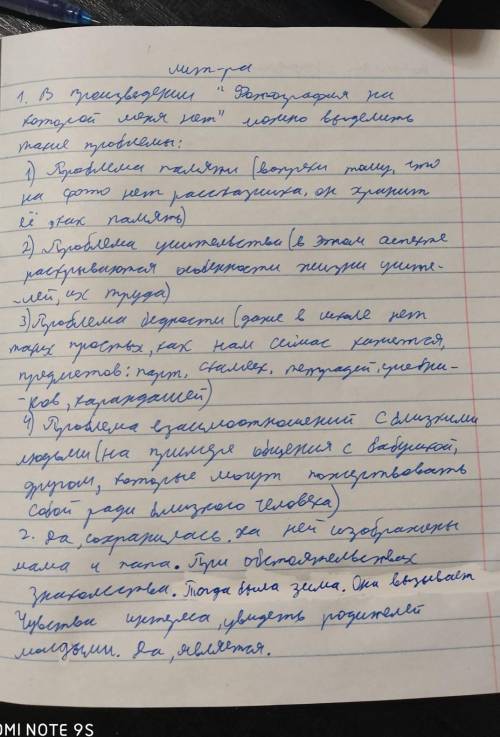 лит-ра
1. В произведении "Фотография на
которой меня нет" можно выделить
такие проблемы:
1) Проблема памяти (вопреки тому, что
на фото нет рассказчика, он хранит
её, как память)
2) Проблема учительства (в этом аспекте
раскрываются особенности жизни учите-
-лей, их труда)
3) Проблема бедности (даже в школе нет
таких простых, как нам сейчас кажется,
предметов: парт, скамеек, тетрадей, учебни-
-ков, карандашей)
4) Проблема взаимоотношений с близкими
людьми (на примере общения с бабушкой,
другом, которые могут пожертвовать
собой ради близкого человека)
2. Да, сохранилась. На ней изображены
мама и папа. При обстоятельствах
знакомства. Тогда была зима. Она вызывает
чувства интереса, увидеть родителей
молодыми. Да, является.
OMI NOTE 9S